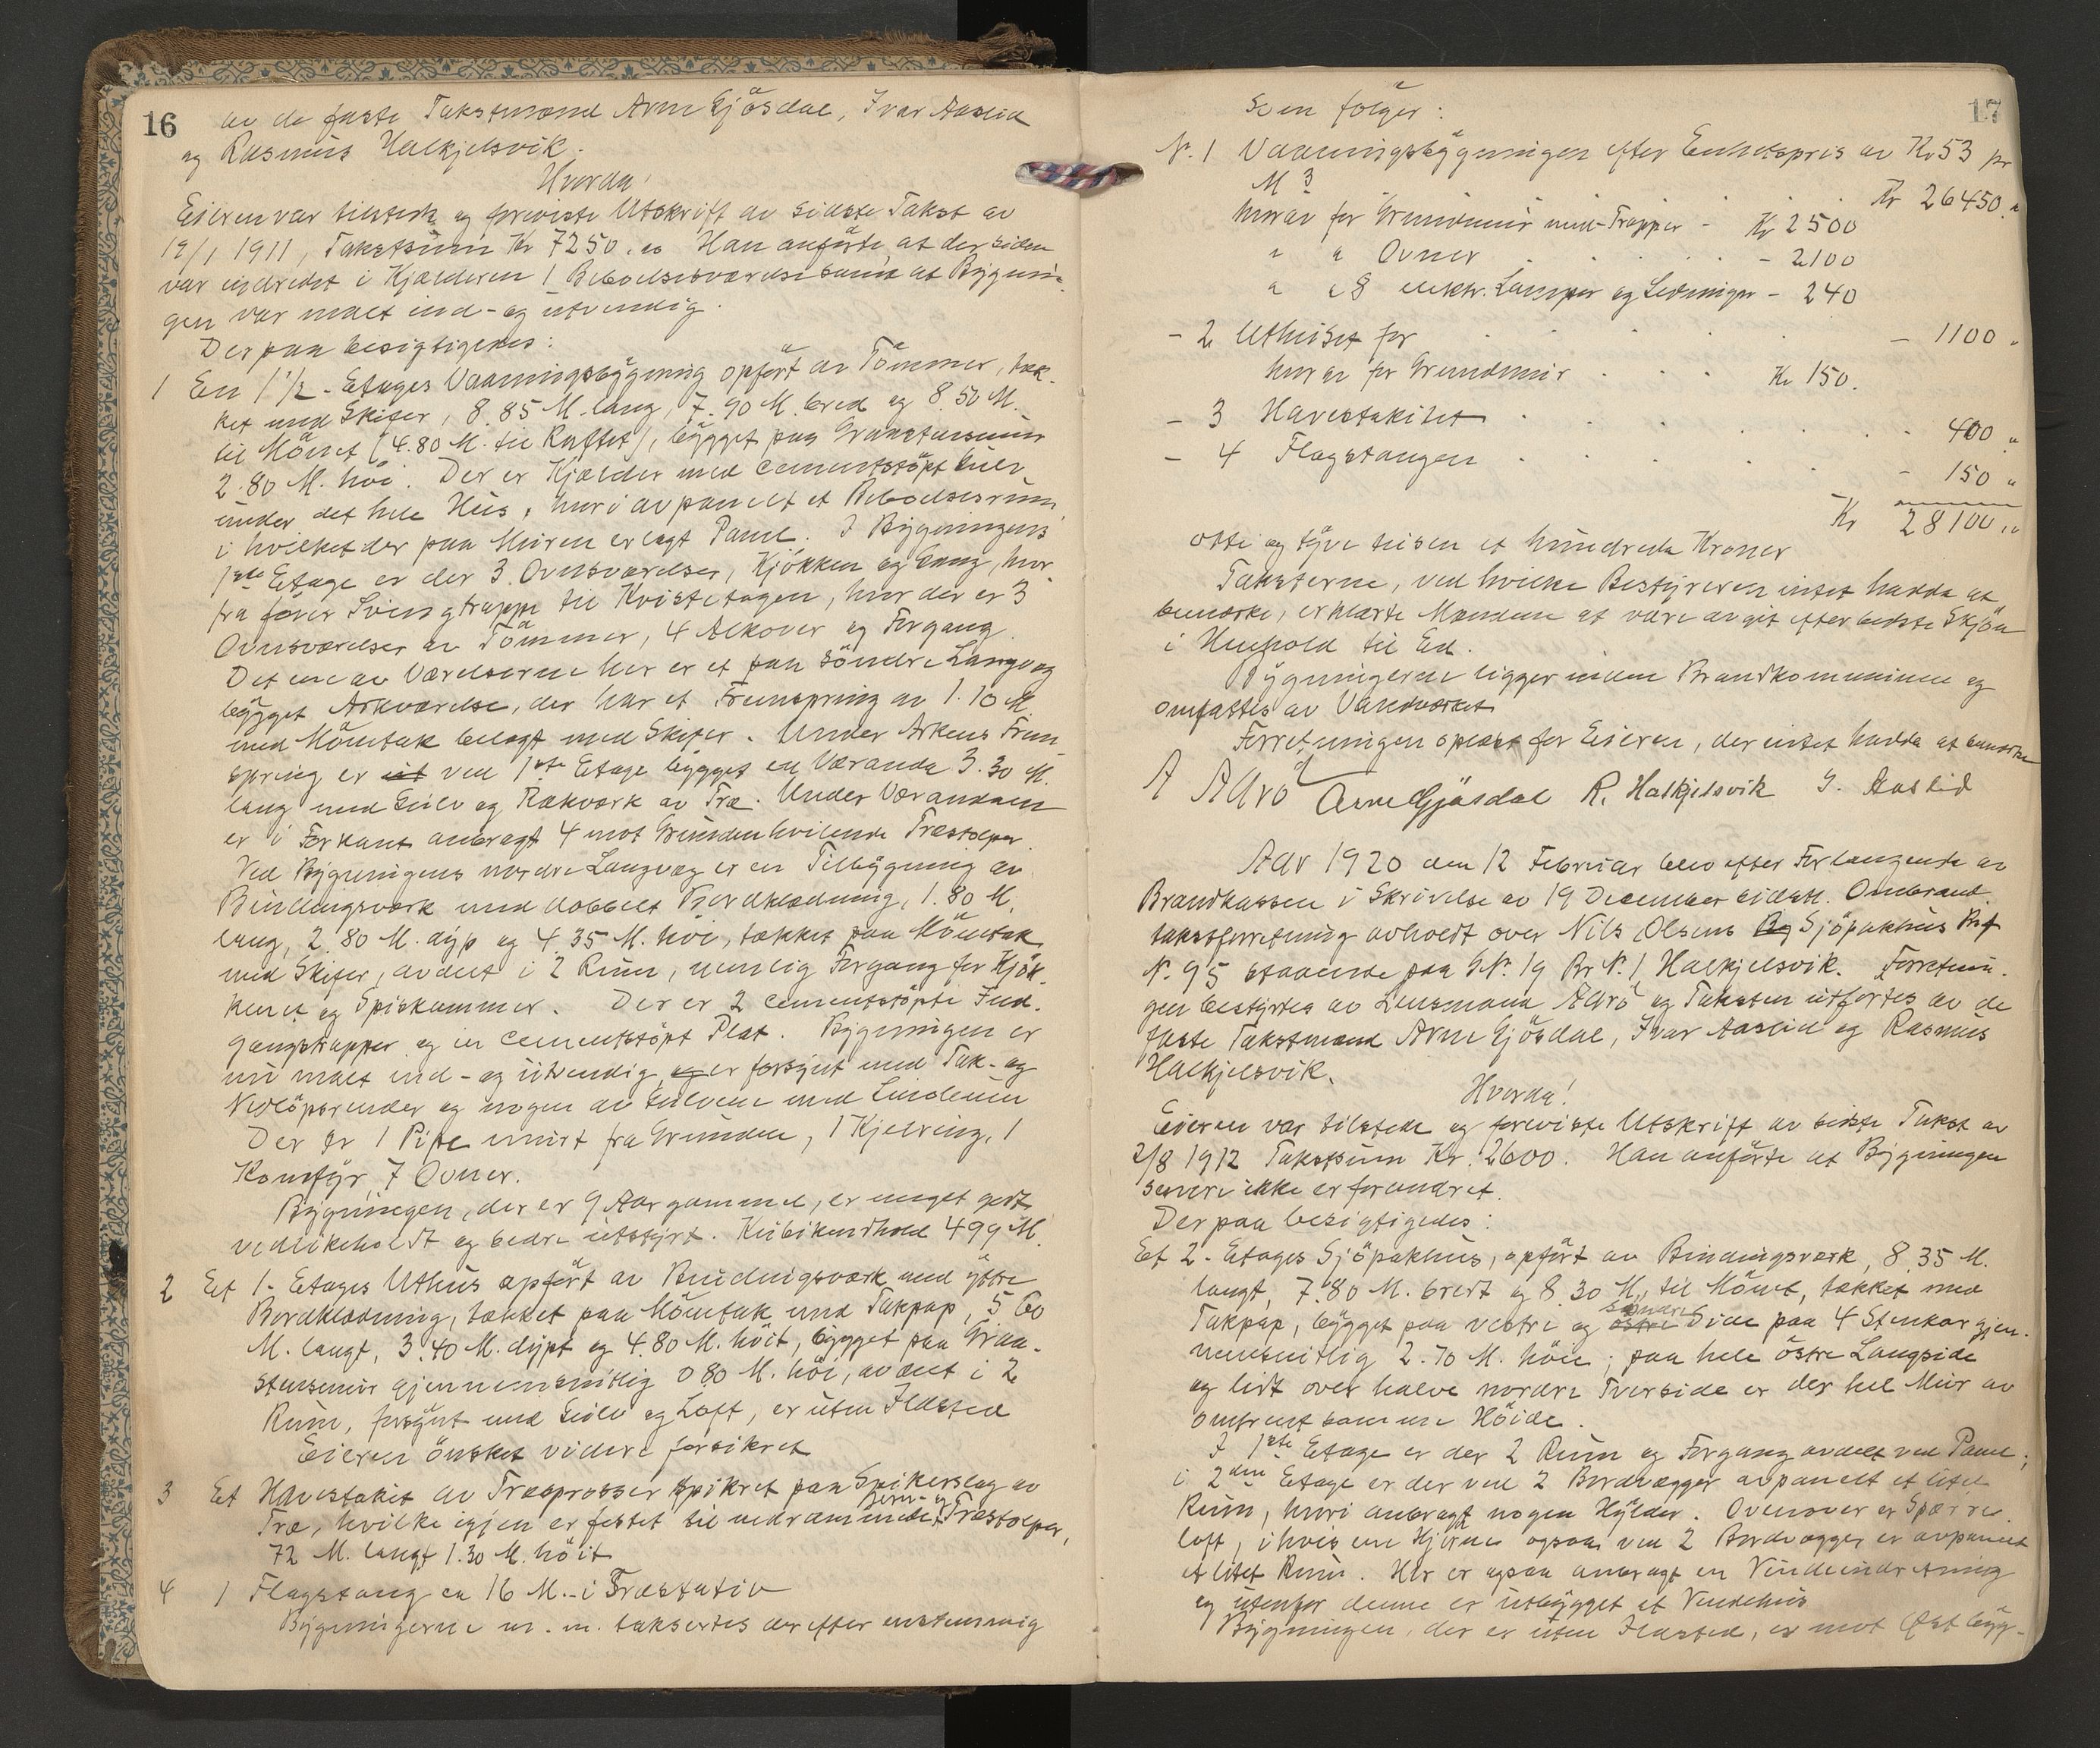 16
av de faste Takstmænd Arne Gjösdal, Ivar Aaslid
og Rasmus Halkjelsvik.
Hvorda!
Eieren var tilstede og foreviste Utskrift av sidste Takst av
19/1 1911, Takstsum Kr 7250.00 Han anförte, at der siden
var indredet i Kjælderen 1 Beboelsesværelse samt at Bygnin-
gen var malt ind- og utvendig.
Derpaa besigtigedes:
1 En 1 1/2 - Etages Vaaningsbygning opfört av Tömmer, tæk-
ket med Skifer, 8.85 M. lang, 7.90 M. bred og 8.50 M.
til Mönet (4.80 M. til Raftet), bygget paa Graastensmur
2.80 M. höi. Der er Kjælder med cementstöpt Gulv
under det hele Hus, hvori avpanelt et Beboelsesrum,
i hvilket der paa Muren er lagt Panel. I Bygningens
1ste Etage er der 3 Ovnsværelser, Kjökken og Gang, hvor-
fra förer Svingtrappe til Kvistetagen, hvor der er 3
Ovnsværelser av Tömmer, 4 Alkover og Forgang.
Det ene av Værelserne her er et paa söndre Langvæg
bygget Arkværelse, der har et Fremspring av 1.10 M.
med Mönetak belagt med Skifer. Under Arkens Frem-
spring er ut ved 1ste Etage bygget en Væranda 3.30 M.
lang med Gulv og Rækværk av Træ. Under Værandaen
er i Forkant anbragt 4 mot Grunden hvilende Træstolper.
Ved Bygningens nordre Langvæg er en Tilbygning av
Bindingsværk med dobbelt Bordklædning, 1.80 M.
lang, 2.80 M. dyp og 4.35 M. höi, tækket paa Mönetak
med Skifer, avdelt i 2 Rum, nemlig Forgang for Kjök-
kenet og Spiskammer. Der er 2 cementstöpte Ind-
gangstrapper og en cementstöpt Plat. Bygningen er
nu malt ind- og utvendig, og er forsynt med Tak- og
Nedlöpsrender og nogen av Gulvene med Linoleum
Der er 1 Pipe murt fra Grunden, 1 Kjelring, 1
Komfyr, 7 Ovner.
Bygningen, der er 9 Aar gammel, er meget godt
vedlikeholdt og bedre utstyrt. Kubikindhold 499 M.
2 Et 1- Etages Uthus opfört av Bindingsværk med ytre
Bordklædning, tækket paa Mönetak med Takpap, 5.60
M. langt, 3.40 M. dypt og 4.80 M. höit, bygget paa Graa-
stensmur gjennemsnitlig 0.80 M. höi, avdelt i 2
Rum, forsynt med Gulv og Loft, er uten Ildsted
Eieren önsket videre forsikret
3 Et Havestakit av Træsprosser spikret paa Spikerslag av
Træ, hvilke igjen er festet til nedrammede Jern- og Træstolper,
72 M. langt 1.30 M. höit
4 1 Flagstang ca 16 M. i Træstativ
Bygningerne m. m. taksertes derefter enstemmig
17
som fölger:
N. 1 Vaaningsbygningen efter Enhetspris av Kr 53 pr
M 3 Kr 26450 "
hvorav for Grundmur med Trapper - Kr 2500
" " Ovner - 2100
" " 8 elektr. Lamper og Ledninger - 240
- 2 Uthuset for - 1100 "
hvorav for Grundmur Kr 150.
- 3 Havestakitet 400 "
- 4 Flagstangen - 150 "
Kr 28100 "
otte og tyve tusen et hundrede Kroner
Taksterne, ved hvilke Bestyreren intet hadde at
bemærke, erklærte Mændene at være avgit efter bedste Skjön
i Henhold til Ed.
Bygningerne ligger inden Brandkommunen og
omfattes av Vandværket
Forretningen oplæst for Eieren, der intet hadde at bemærke
A Aarö Arne Gjösdal R. Halkjelsvik I. Aaslid
Aar 1920 den 12 Februar blev efter Forlangende av
Brandkassen i Skrivelse av 19 December sidstl. Ombrand-
takstforretning avholdt over Nils Olsens By Sjöpakhus Br.f
N. 95 staaende paa G N. 19 Br N. 1 Halkjelsvik. Forretnin-
gen bestyrtes av Lensmand Aarö og Taksten utfortes av de
faste Takstmænd Arne Gjösdal, Ivar Aaslid og Rasmus
Halkjelsvik.
Hvorda!
Eieren var tilstede og foreviste Utskrift av sidste Takst av
2/8 1912 Takstsum Kr. 2600. Han anförte at Bygningen
senere ikke er forandret.
Derpaa besigtigedes:
Et 2- Etages Sjöpakhus, opfört av Bindingsværk, 8.35 M.
langt, 7.80 M. bredt og 8.30 M. til Mönet, tækket med
Takpap, bygget paa vestre og östre söndre Side paa 4 Stenkar gjen-
nemsnitlig 2.70 M. höie; paa hele östre Langside
og lidt over halve nordre Tverside er der hel Mur av
omtrent samme Höide.
I 1ste Etage er der 2 Rum og Forgang avdelt ved Panel;
i 2den Etage er der ved 2 Bordvægger avpanelt et litet
Rum, hvori anbragt nogen Hylder. Ovenover er Spærre-
loft, i hvis ene Hjörne ogsaa ved 2 Bordvægger er avpanelt
et litet Rum. Her er ogsaa anbragt en Vindeindretning
og utenfor denne er utbygget et Vindehus
Bygningen, der er uten Ildsted, er mot Öst byg-